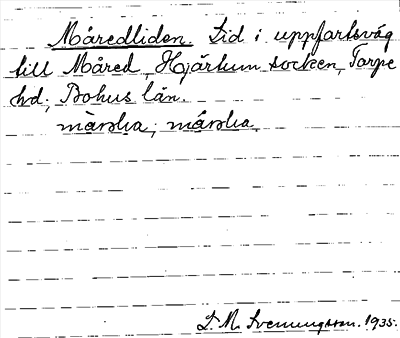 Måredliden. Lid i uppfartsväg
till Måred, Hjärtum socken, Torpe
hd., Bohus län.
S. M. Svenungsson. 1935.